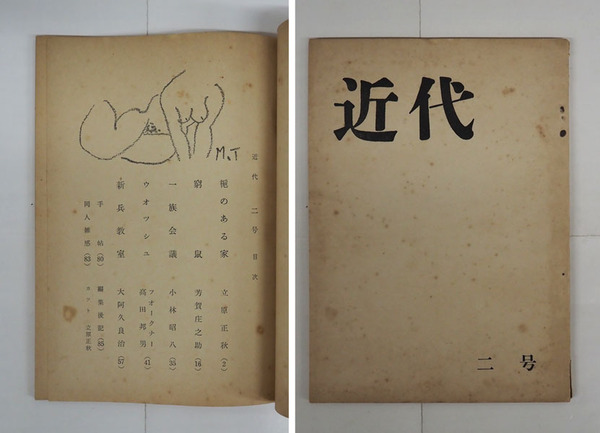 M.T
近代 二号 目次
梔のある家 立原正秋 (2)
窮鼠 芳賀庄之助 (16)
一族会議 小林昭八 (35)
ウオツシユ フオークナー 高田邦男 (41)
新兵教室 大阿久良治 (57)
手帖 (80) 編集後記 (85)
同人雑感 (83) カット 立原正秋
近代
二号